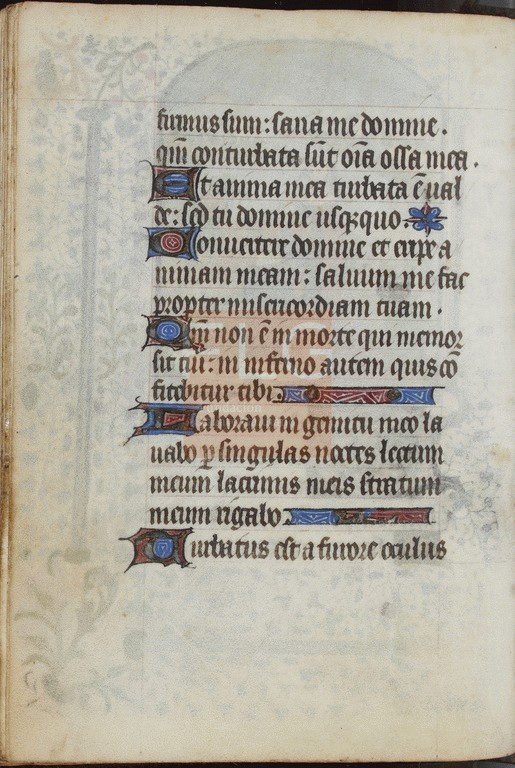 firmus sum: sana me domine.
qm̄ conturbata sūt oīa ossa mea.
Et anima mea turbata ē ual
de: sed tu domine usq̄quo.
Conuertere domine et eripe a
nimam meam: saluum me fac
propter misericordiam tuam.
Qm̄ non ē in morte qui memor
sit tui: in inferno autem quis cō
fitebitur tibi.
Laboraui in gemitu meo la
uabo p̱ singulas noctes lectum
meum lacrimis meis stratum
meum rigabo.
Turbatus est a furore oculus